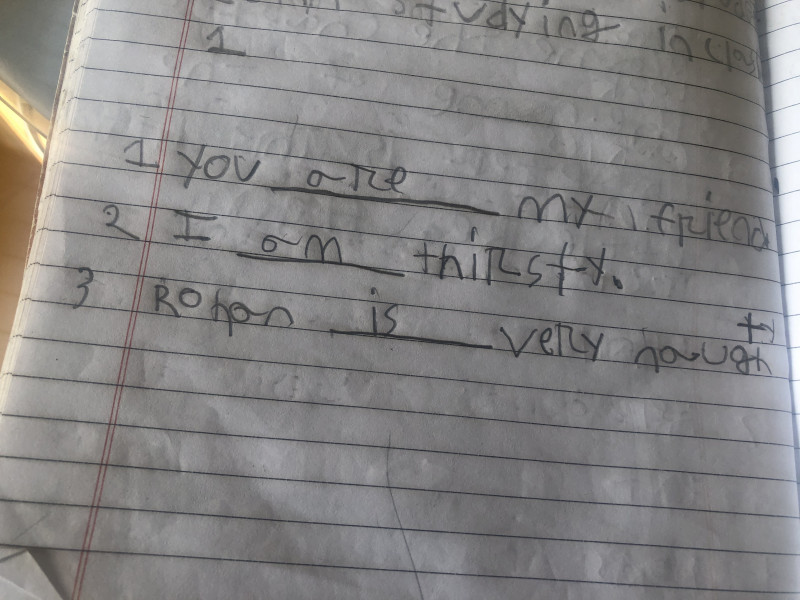 studying in clas
1
1 You are my friend
2 I am thirsty.
3 Rohan is very naugh
ty